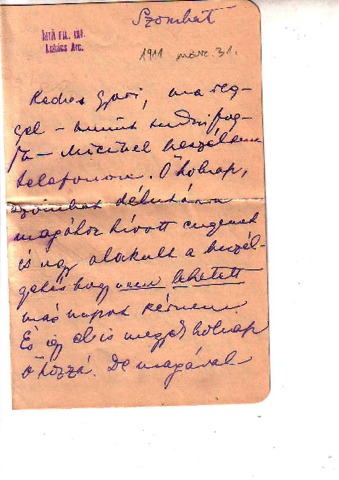 Szombat
MTA FIL. INT.
Lukács Arc.
1911 márc. 31.
Kedves Gyuri, ma reg-
gel – mint tudni fog-
ja – Micivel beszéltem
telefonon. Ő holnap,
szombat délutánra
magához hívott engemet
és úgy alakult a beszél-
getés hogy nem lehetett
más napot kérnem.
És így el is megyek holnap
ő hozzá. De magával